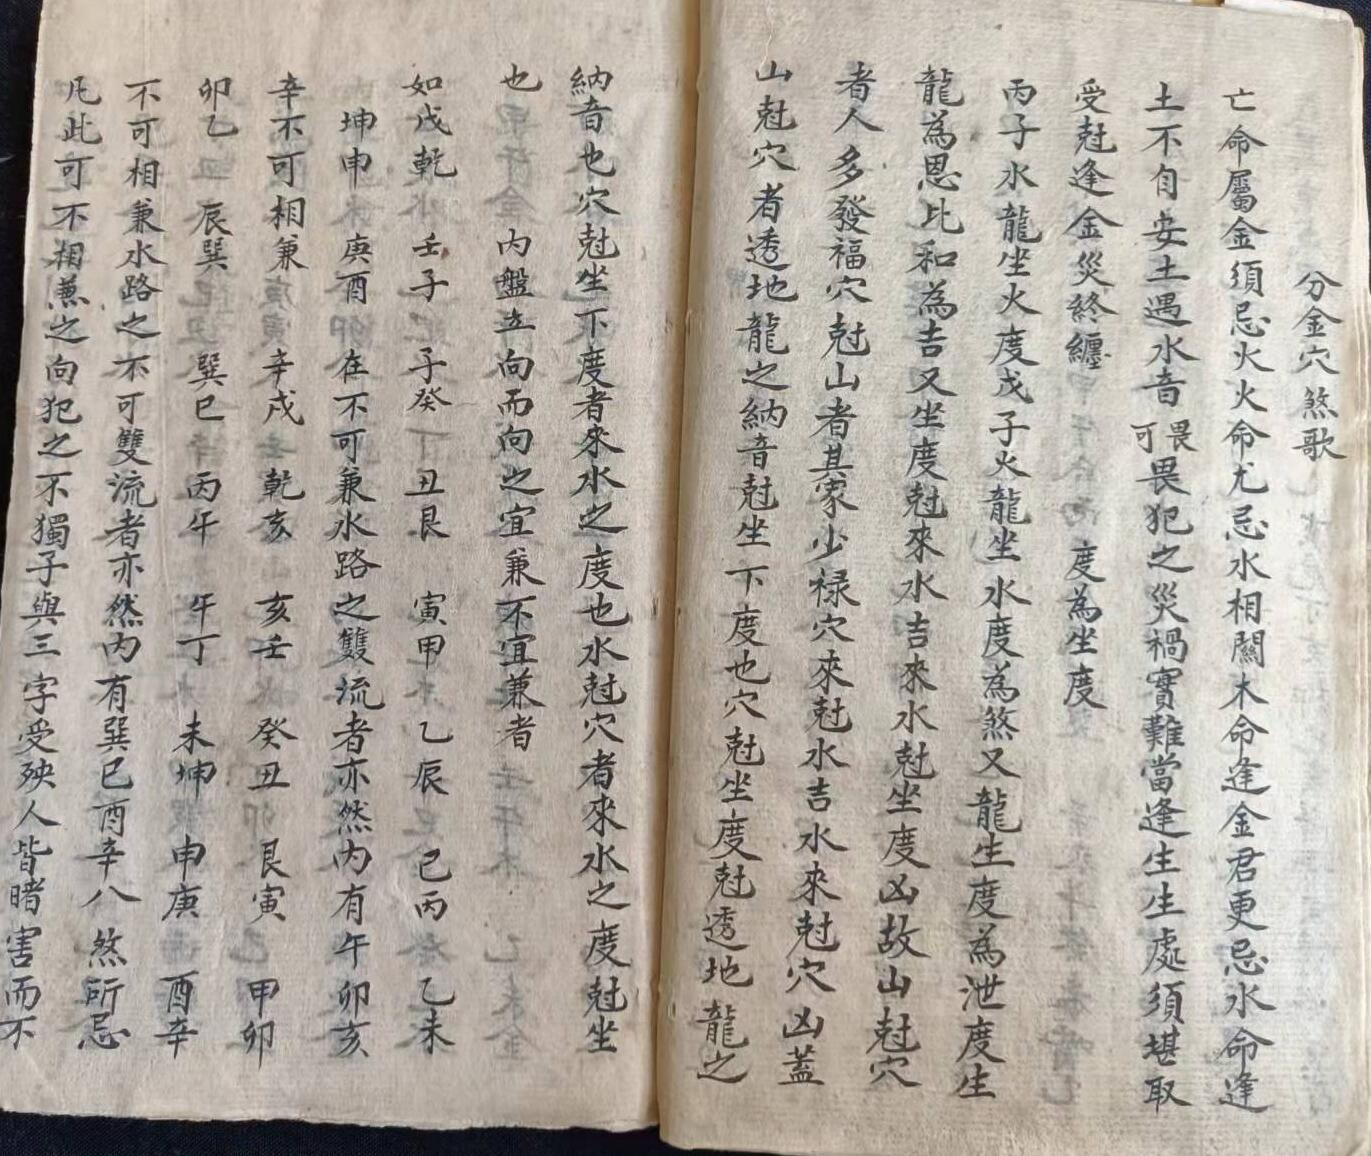 分金穴煞歌
亡命屬金須忌火火命尤忌水相關木命逢金君更忌水命逢
土不自安土遇水音可畏畏犯之災禍實難當逢生生處須堪取
受尅逢金災終纏 度為坐度
丙子水龍坐火度戊子火龍坐水度為煞又龍生度為泄度生
龍為恩比和為吉又坐度尅來水吉來水尅坐度凶故山尅穴
者人多發福穴尅山者其家少禄穴來尅水吉水來尅穴凶蓋
山尅穴者透地龍之納音尅坐下度也穴尅坐度尅透地龍之
納音也穴尅坐下度者來水之度也水尅穴者來水之度尅坐
也 内盤立向而向之宜兼不宜兼者
如戌乾 壬子 子癸 丑艮 寅甲 乙辰 巳丙 乙未
坤申 庚酉 在不可兼水路之雙流者亦然内有午卯亥
辛不可相兼 辛戌 乾亥 亥壬 癸丑 艮寅 甲卯
卯乙 辰巽 巽巳 丙午 午丁 未坤 申庚 酉辛
不可相兼水路之不可雙流者亦然内有巽巳酉辛八煞所忌
凡此可不相兼之向犯之不獨子與三字受殃人皆暗害而不